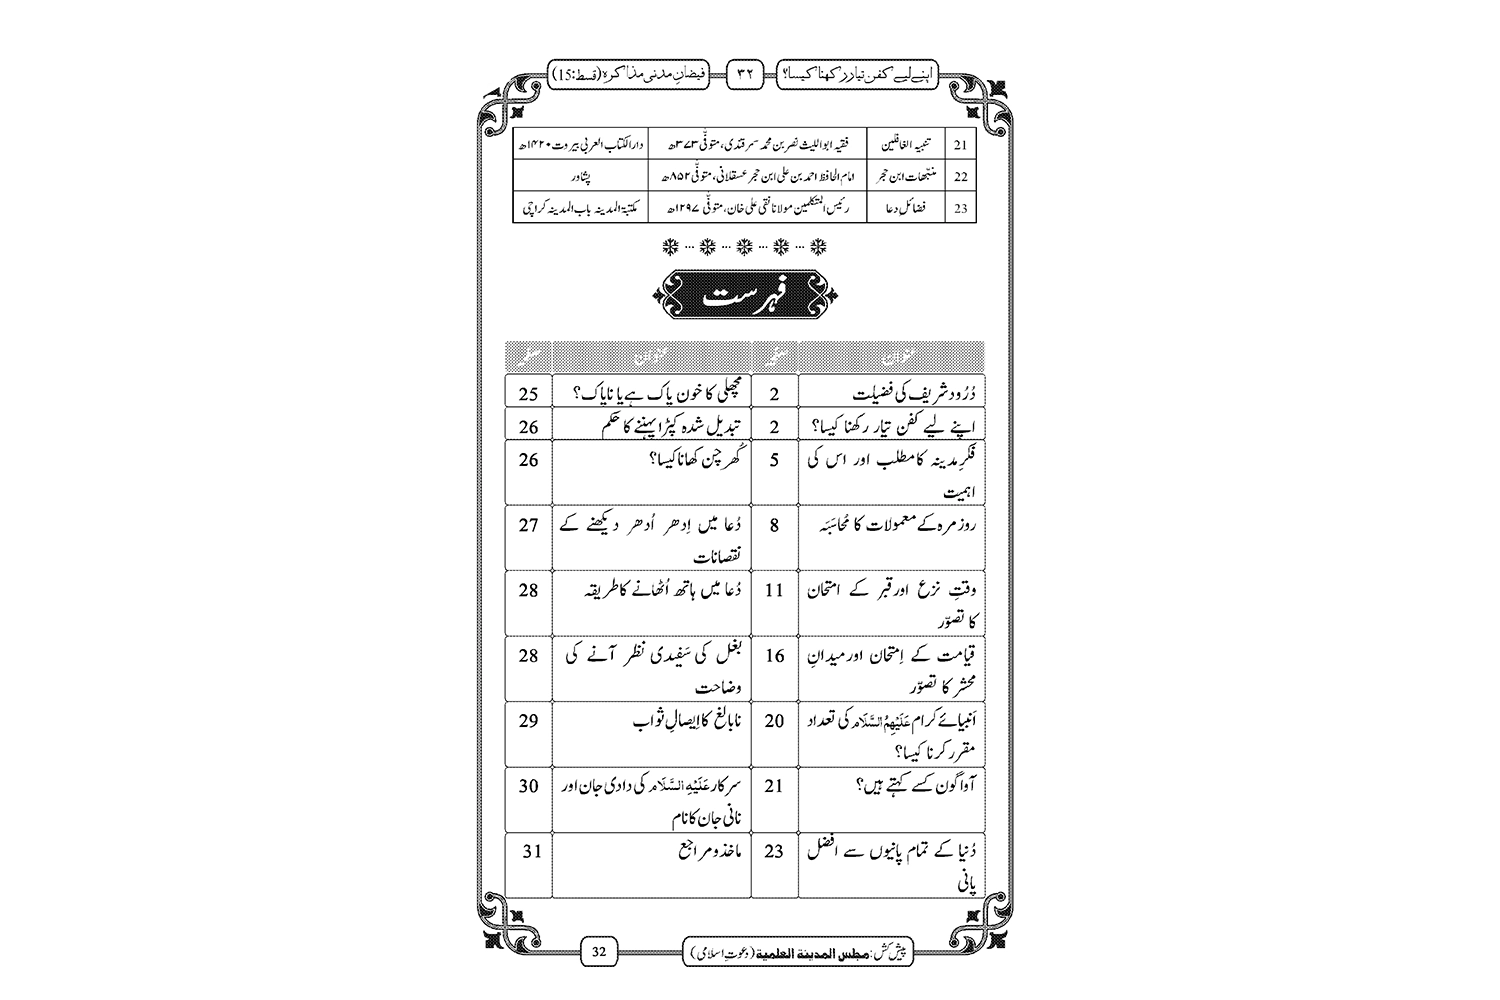 اپنے لیے کفن تیار رکھنا کیسا؟ ۳۲ فیضانِ مدنی مذاکرہ (قسط:15)
21 تنبیہ الغافلین فقیہ ابو اللیث نصر بن محمد سمرقندی، متوفّٰی ۳۷۳ھ دار الکتاب العربی بیروت ۱۴۲۰ھ
22 منبّھات ابن حجر امام الحافظ احمد بن علی ابن حجر عسقلانی، متوفّٰی ۸۵۲ھ پشاور
23 فضائلِ دعا رئیس المتکلمین مولانا نقی علی خان، متوفّٰی ۱۲۹۷ھ مکتبۃ المدینہ باب المدینہ کراچی
فہرست
عنوان صفحہ عنوان صفحہ
دُرُود شریف کی فضیلت 2 مچھلی کا خون پاک ہے یا ناپاک؟ 25
اپنے لیے کفن تیار رکھنا کیسا؟ 2 تبدیل شدہ کپڑا پہننے کا حکم 26
فکرِ مدینہ کا مطلب اور اس کی 5 کُھرچن کھانا کیسا؟ 26
اہمیت
روز مرہ کے معمولات کا مُحاسَبَہ 8 دُعا میں اِدھر اُدھر دیکھنے کے 27
نقصانات
وقتِ نزع اور قبر کے امتحان 11 دُعا میں ہاتھ اُٹھانے کا طریقہ 28
کا تصوّر
قیامت کے اِمتحان اور میدانِ 16 بغل کی سَفیدی نظر آنے کی 28
محشر کا تصوّر وضاحت
اَنبیائے کرام عَلَیْہِمُ السَّلَام کی تعداد 20 نابالغ کا اِیصالِ ثواب 29
مقرر کرنا کیسا؟
آواگون کسے کہتے ہیں؟ 21 سرکار عَلَیْہِ السَّلَام کی دادی جان اور 30
نانی جان کا نام
دُنیا کے تمام پانیوں سے افضل 23 ماخذ و مراجع 31
پانی
پیش کش: مجلس المدینۃ العلمیۃ (دعوتِ اسلامی) 32